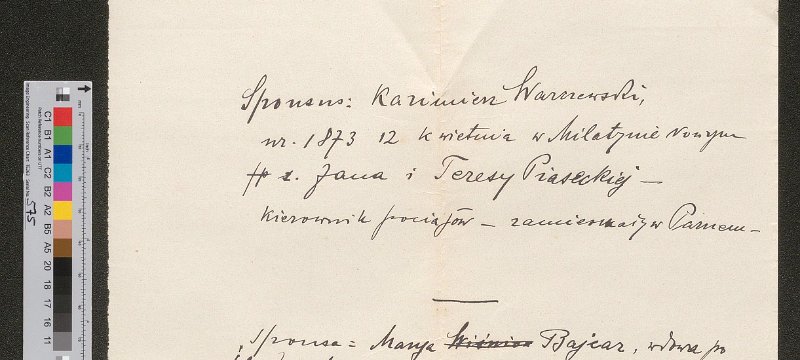 Sponsus: Kazimierz Warszewski,
ur. 1873 12 kwietnia w Milatynie Nowym
s. Jana i Teresy Piaseckiej —
Kierownik pociągów — zamieszkały w
Sponsa = Marya Wiśniow Bajcar, wdowa po
575
C1
B1
A1
C2
B2
A2
B5
A5
20
18
17
16
11